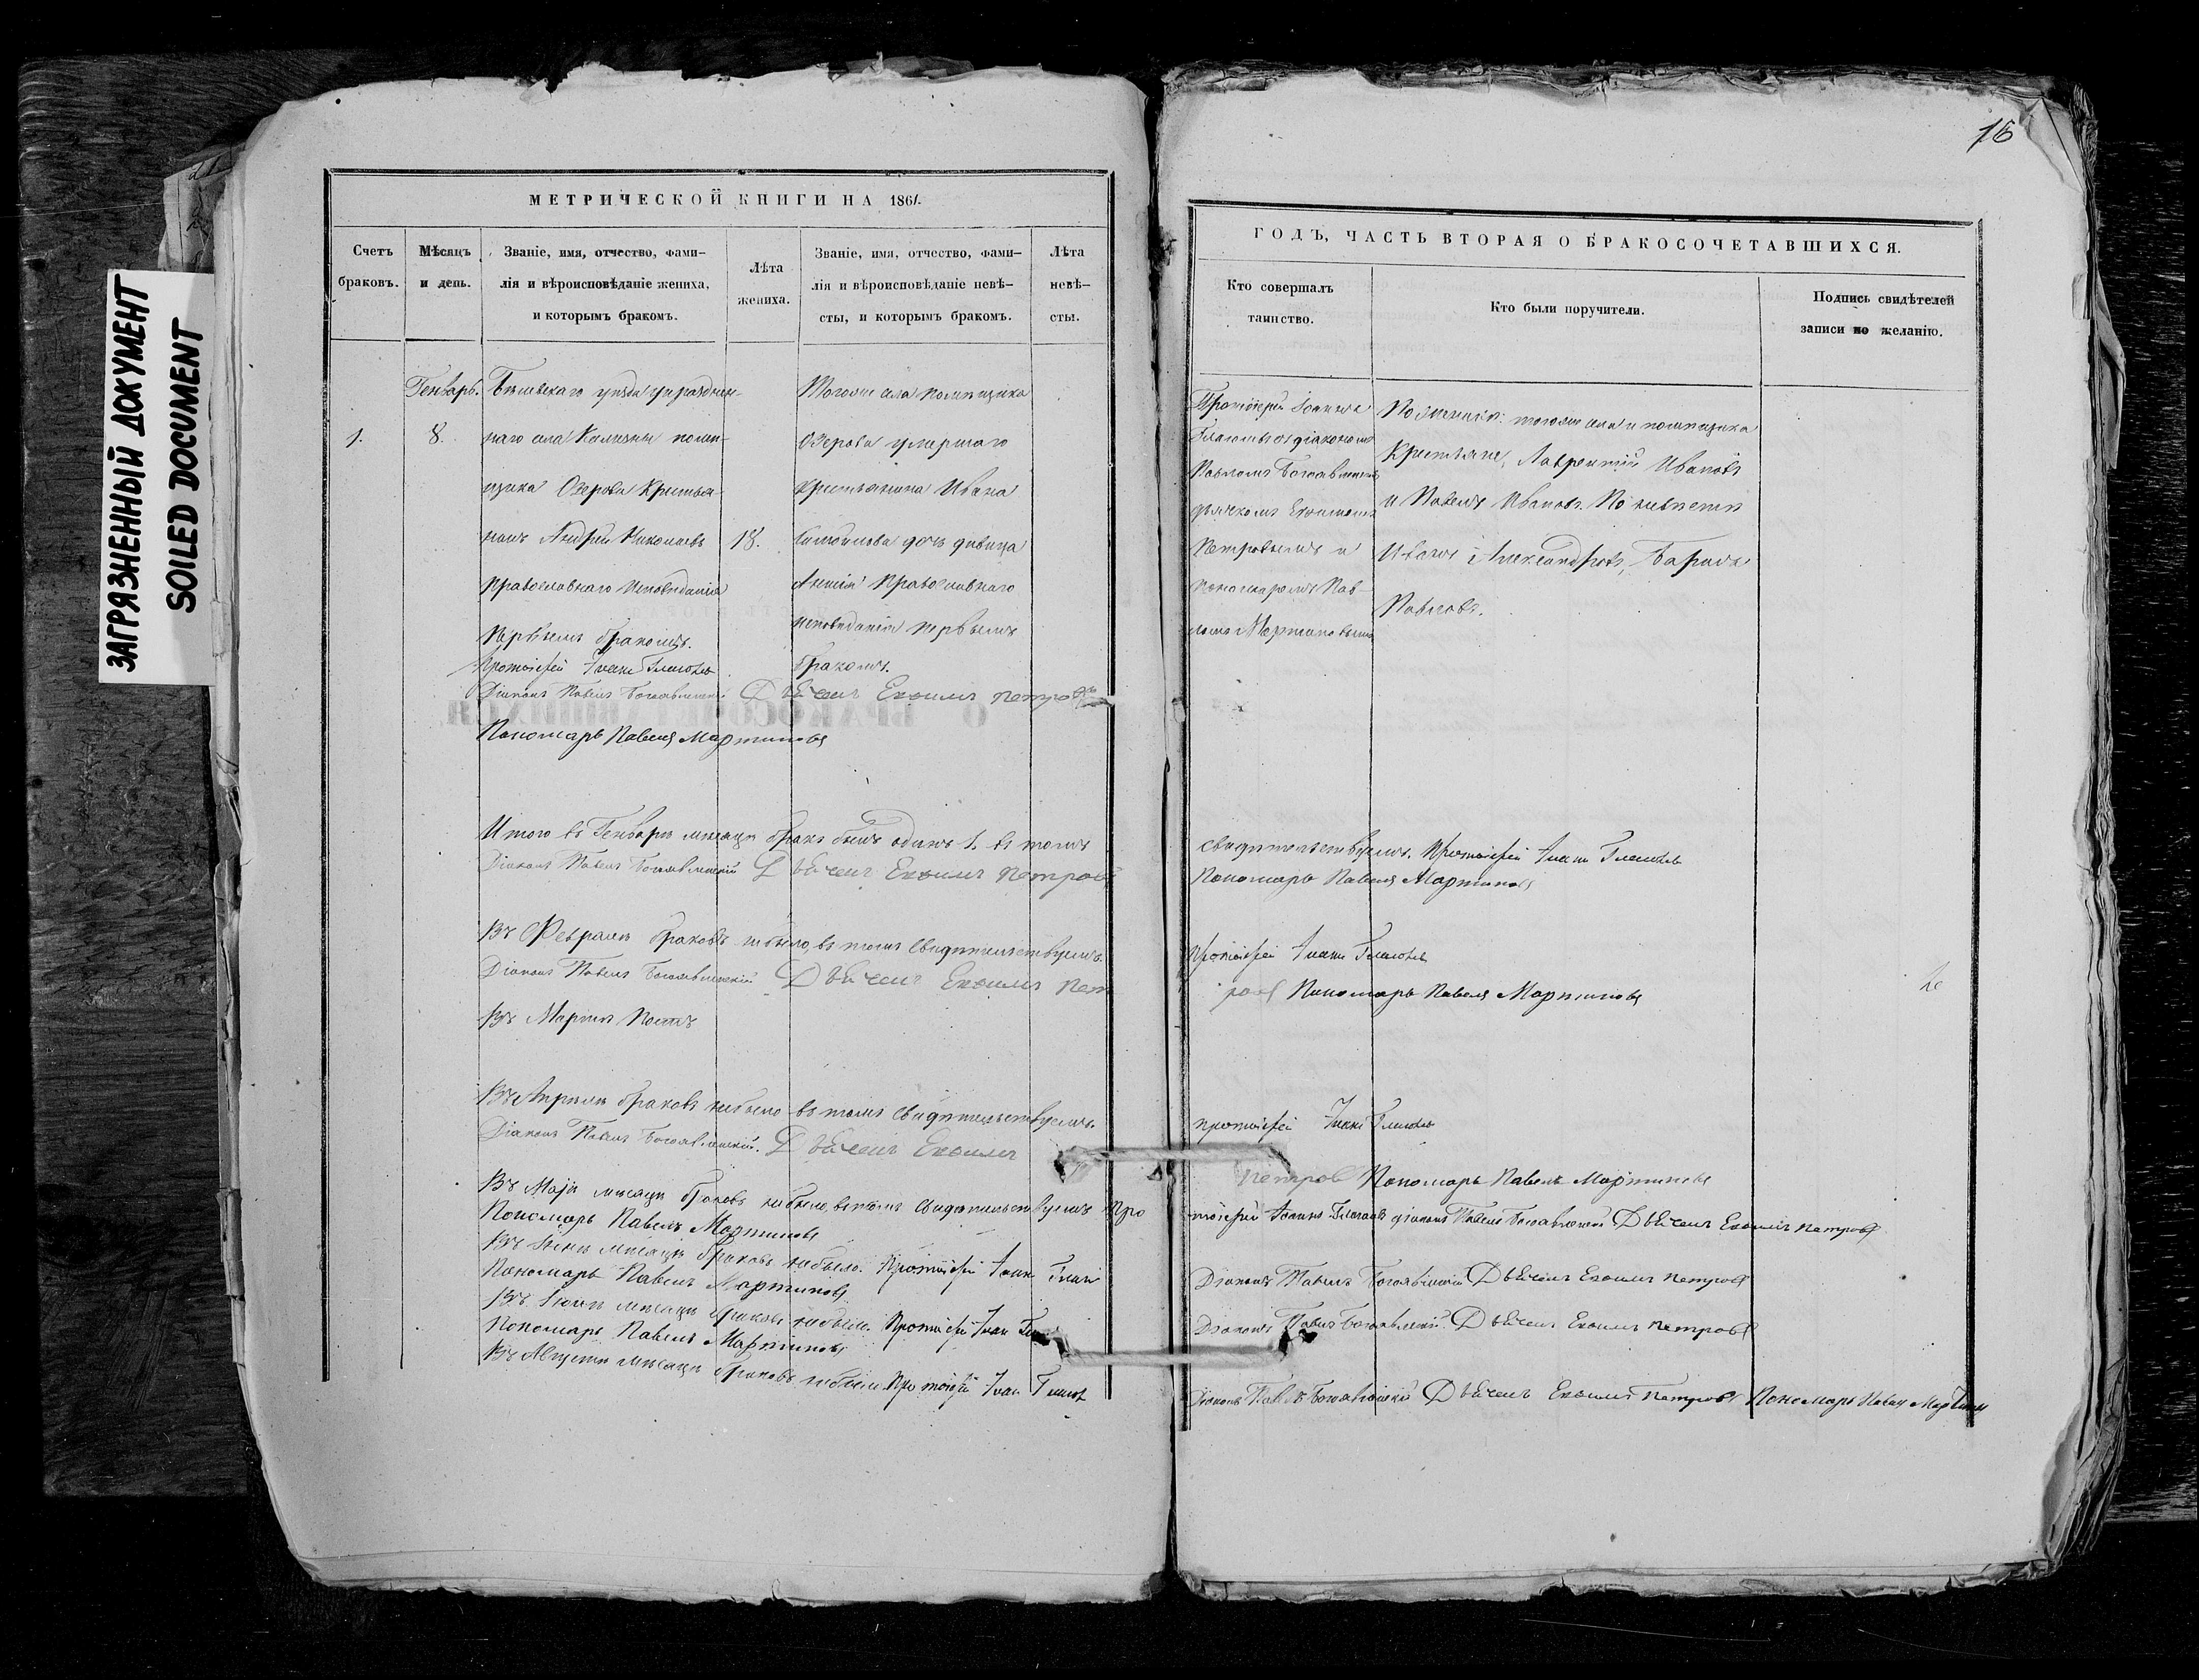 ЗАГРЯЗНЕННЫЙ ДОКУМЕНТ
SOILED DOCUMENT
МЕТРИЧЕСКОЙ КНИГИ НА 1861.
Счетъ браковъ.
Мѣсяцъ и день.
Званіе, имя, отчество, фами-
лія и вѣроисповѣданіе жениха,
и которымъ бракомъ.
Лѣта
жениха.
Званіе, имя, отчество, фами-
лія и вѣроисповѣданіе невѣ-
сты, и которымъ бракомъ.
Лѣта
невѣ-
сты.
1.
Генварь.
8.
Бѣлевскаго уѣзда упразднен-
наго села Кализны помѣ-
щика Озерова Крестья-
нинъ Андрей Николаевъ
православнаго исповѣданія
первымъ бракомъ.
18.
Тогоже села помѣщика
Озерова умершаго
крестьянина Ивана
дочь дѣвица
Православнаго
исповѣданія первымъ
бракомъ.
Протоіерей Іоаннъ Глаголевъ
Діаконъ Павелъ Богоявленскій Дьячекъ Евѳимъ Петровъ
Пономарь Павелъ Мартиновъ
Итого въ Генварѣ мѣсяцѣ бракъ былъ одинъ 1. въ томъ
Діаконъ Павелъ Богоявленскій Дьячекъ Евѳимъ Петровъ
Въ Февралѣ браковъ небыло, въ томъ свидѣтельствуемъ.
Діаконъ Павелъ Богоявленскій Дьячекъ Евѳимъ Пет
Въ Мартѣ Постъ
Въ Апрѣлѣ браковъ небыло въ томъ свидѣтельствуемъ.
Діаконъ Павелъ Богоявленскій. Дьячекъ Евѳимъ
Въ Маѣ мѣсяцѣ браковъ небыло, въ томъ свидѣтельствуемъ Про
Пономарь Павелъ Мартиновъ
Въ Іюнѣ мѣсяцѣ браковъ небыло. Протоіерей Іоаннъ
Пономарь Павелъ Мартиновъ
Въ Іюлѣ мѣсяцѣ браковъ небыло. Протоіерей Іоаннъ
Пономарь Павелъ Мартиновъ
Въ Августѣ мѣсяцѣ браковъ небыло Протоіерей Іоаннъ
16
ГОДЪ, ЧАСТЬ ВТОРАЯ О БРАКОСОЧЕТАВШИХСЯ.
Кто совершалъ
таинство.
Кто были поручители.
Подпись свидѣтелей
записи по желанію.
Протоіерей Іоаннъ
Глаголевъ съ діакономъ
Павломъ Богоявленскимъ
дьячкомъ Евѳимомъ
Петровымъ и
пономаремъ Пав-
ломъ Мартиновымъ
По женихѣ: тогоже села и помѣщика
Крестьяне, Лаврентій Ивановъ
и Павелъ Ивановъ. По невѣстѣ
Иванъ Александровъ,
Павловъ.
свидѣтельствуемъ. Протоіерей Іоаннъ Глаголевъ
Пономарь Павелъ Мартиновъ
Протоіерей Іоаннъ Глаголевъ
ровъ Пономарь Павелъ Мартиновъ
протоіерей Іоаннъ Глаголевъ
Петровъ Пономарь Павелъ Мартиновъ
тоіерей Іоаннъ Глаголевъ діаконъ Павелъ Богоявленскій Дьячекъ Евѳимъ Петровъ
Діаконъ Павелъ Богоявленскій Дьячекъ Евѳимъ Петровъ
Діаконъ Павелъ Богоявленскій. Дьячекъ Евѳимъ Петровъ
Діаконъ Павелъ Богоявленскій Дьячекъ Евѳимъ Петровъ Пономарь Павелъ Мартиновъ